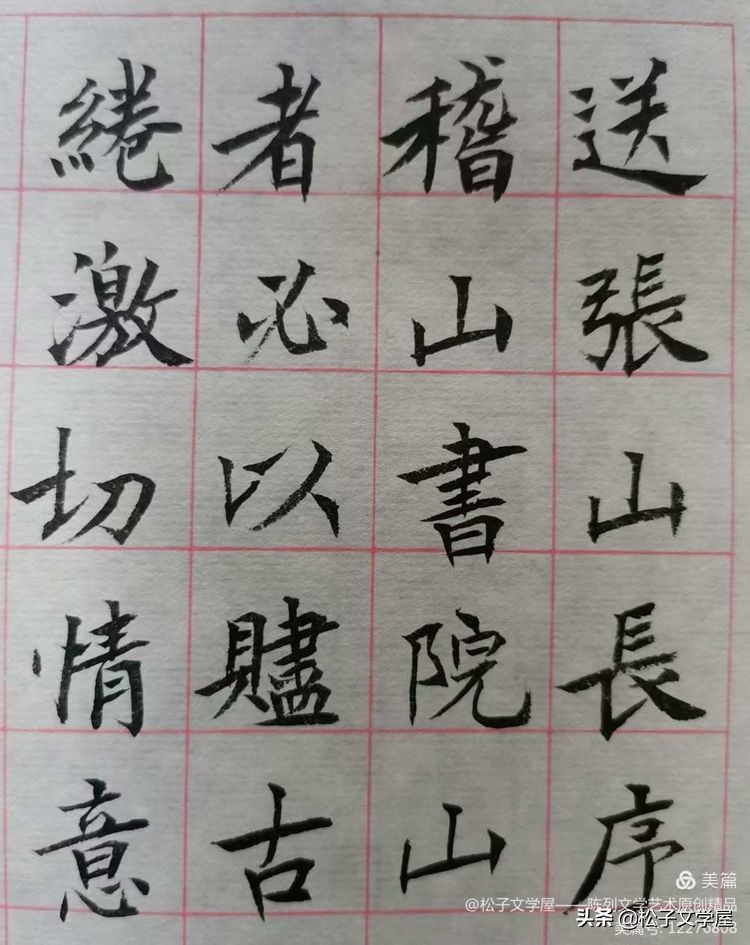 送張山長序
稽山書院山
者必以贐古
綣激切情意
美篇
@松子文学屋——陈列文学艺术原创精品
头条 @松子文学屋